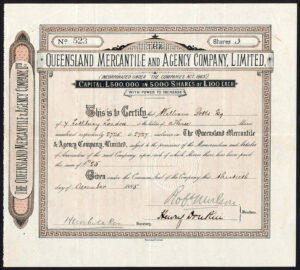 No. 523
Shares 5
THE
QUEENSLAND MERCANTILE AND AGENCY COMPANY, LIMITED.
(INCORPORATED UNDER THE COMPANIES ACT, 1863)
CAPITAL £,500,000 IN 5000 SHARES OF £100 EACH
WITH POWER TO INCREASE
This is to Certify that William Potts Esq
of Lothbury London is the holder of Shares
numbered respectively to in The Queensland Mercantile
& Agency Company, Limited, subject to the provisions of the Memorandum and Articles
of Association of the said Company, upon each of which Shares there has been paid
the sum of £25
Given under the Common Seal of the Company this
day of December 1885
Directors
Henry
Secretary
THE QUEENSLAND MERCANTILE & AGENCY COMPANY LD